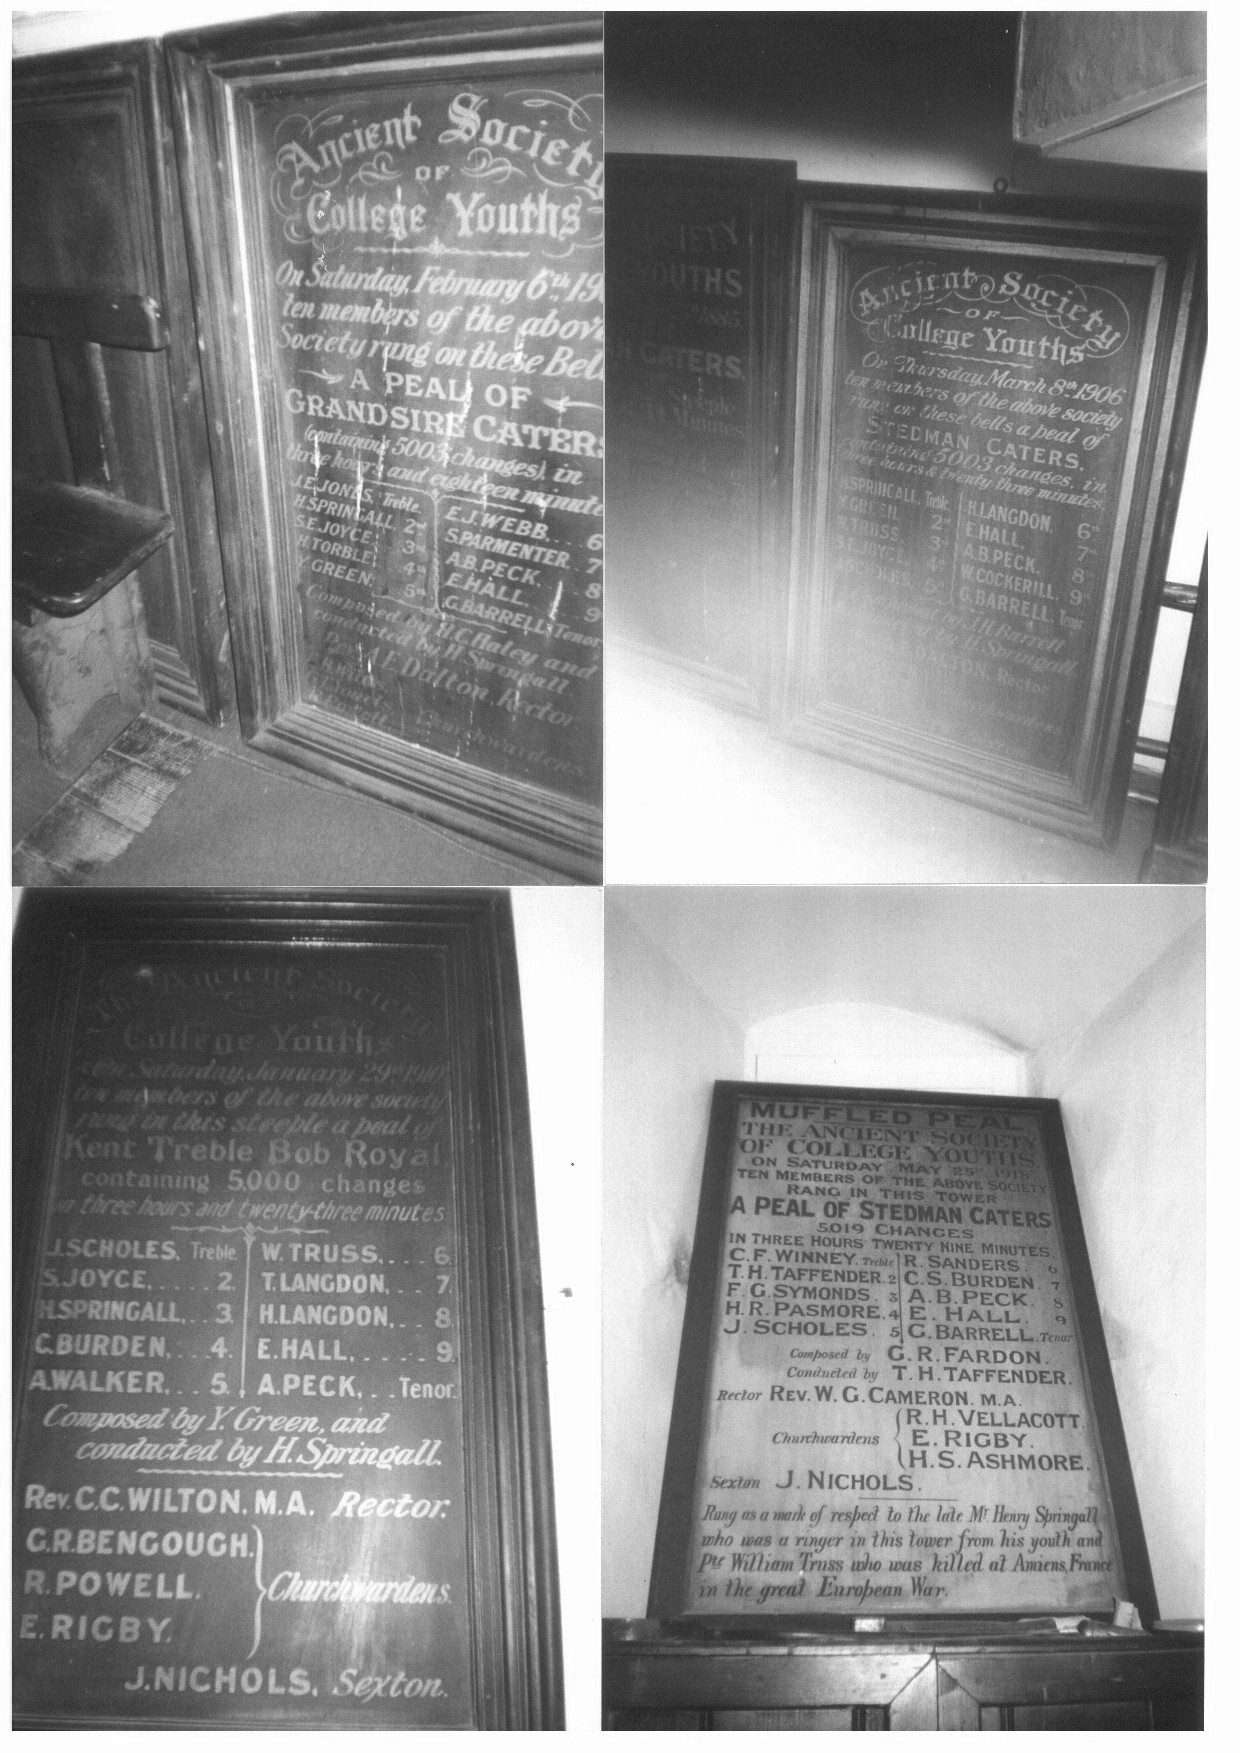 Ancient Society
OF
College Youths
On Saturday, February 6th 19
ten members of the above
Society rung on these Bel
A PEAL OF
GRANDSIRE CATERS
(containing 5003 changes), in
three hours and eighteen minute
J.E.JONES, Treble.
H.SPRINGALL. 2nd
S.E.JOYCE. 3rd
H.TORBLE. 4th
Y.GREEN. 5th
E.J.WEBB. 6
S.PARMENTER. 7
A.B.PECK. 8
E.HALL. 9
G.BARRELL. Tenor
Composed by H.C.Haley and
conducted by H.Springall
Rev. A.E Dalton. Rector
Churchwardens.
SOCIETY
YOUTHS
1885.
CATERS.
Steeple
Minutes
Ancient Society
OF
College Youths
On Thursday, March 8th 1906
ten members of the above society
rung on these bells a peal of
STEDMAN CATERS.
containing 5003 changes, in
three hours & twenty three minutes.
H.SPRINGALL, Treble.
Y.GREEN. 2nd
W.TRUSS. 3rd
S.E.JOYCE. 4th
J.SCHOLES. 5th
H.LANGDON. 6th
E.HALL. 7th
A.B.PECK. 8th
W.COCKERILL. 9th
G.BARRELL. Tenor
Composed by J.H.Barrett
conducted by H.Springall
DALTON. Rector
The Ancient Society
OF
College Youths
On Saturday, January 29th 1910
ten members of the above society
rung in this steeple a peal of
Kent Treble Bob Royal
containing 5,000 changes
in three hours and twenty-three minutes.
J.SCHOLES, Treble.
S.JOYCE, . . . . 2.
H.SPRINGALL, . . 3.
C.BURDEN, . . . 4.
A.WALKER, . . 5.
W.TRUSS, . . . 6.
T.LANGDON, . . 7.
H.LANGDON, . . 8.
E.HALL, . . . . . 9.
A.PECK, . . Tenor.
Composed by Y. Green, and
conducted by H.Springall.
Rev. C.C.WILTON. M.A. Rector.
G.R.BENGOUGH.
R.POWELL.
E.RIGBY.
Churchwardens.
J.NICHOLS, Sexton.
MUFFLED PEAL
THE ANCIENT SOCIETY
OF COLLEGE YOUTHS
ON SATURDAY MAY 25th 1918
TEN MEMBERS OF THE ABOVE SOCIETY
RANG IN THIS TOWER
A PEAL OF STEDMAN CATERS
5019 CHANGES
IN THREE HOURS TWENTY NINE MINUTES.
C.F. WINNEY. Treble
T.H. TAFFENDER. 2
F.G. SYMONDS. 3
H.R. PASMORE. 4
J. SCHOLES. 5
R. SANDERS. 6
C.S. BURDEN. 7
A.B. PECK. 8
E. HALL. 9
G. BARRELL. Tenor
Composed by G.R. FARDON.
Conducted by T.H. TAFFENDER.
Rector REV. W. G. CAMERON. M.A.
R.H. VELLACOTT.
Churchwardens E. RIGBY.
H.S. ASHMORE.
Sexton J. NICHOLS.
Rung as a mark of respect to the late Mr. Henry Springall
who was a ringer in this tower from his youth and
Pte William Truss who was killed at Amiens, France
in the great European War.